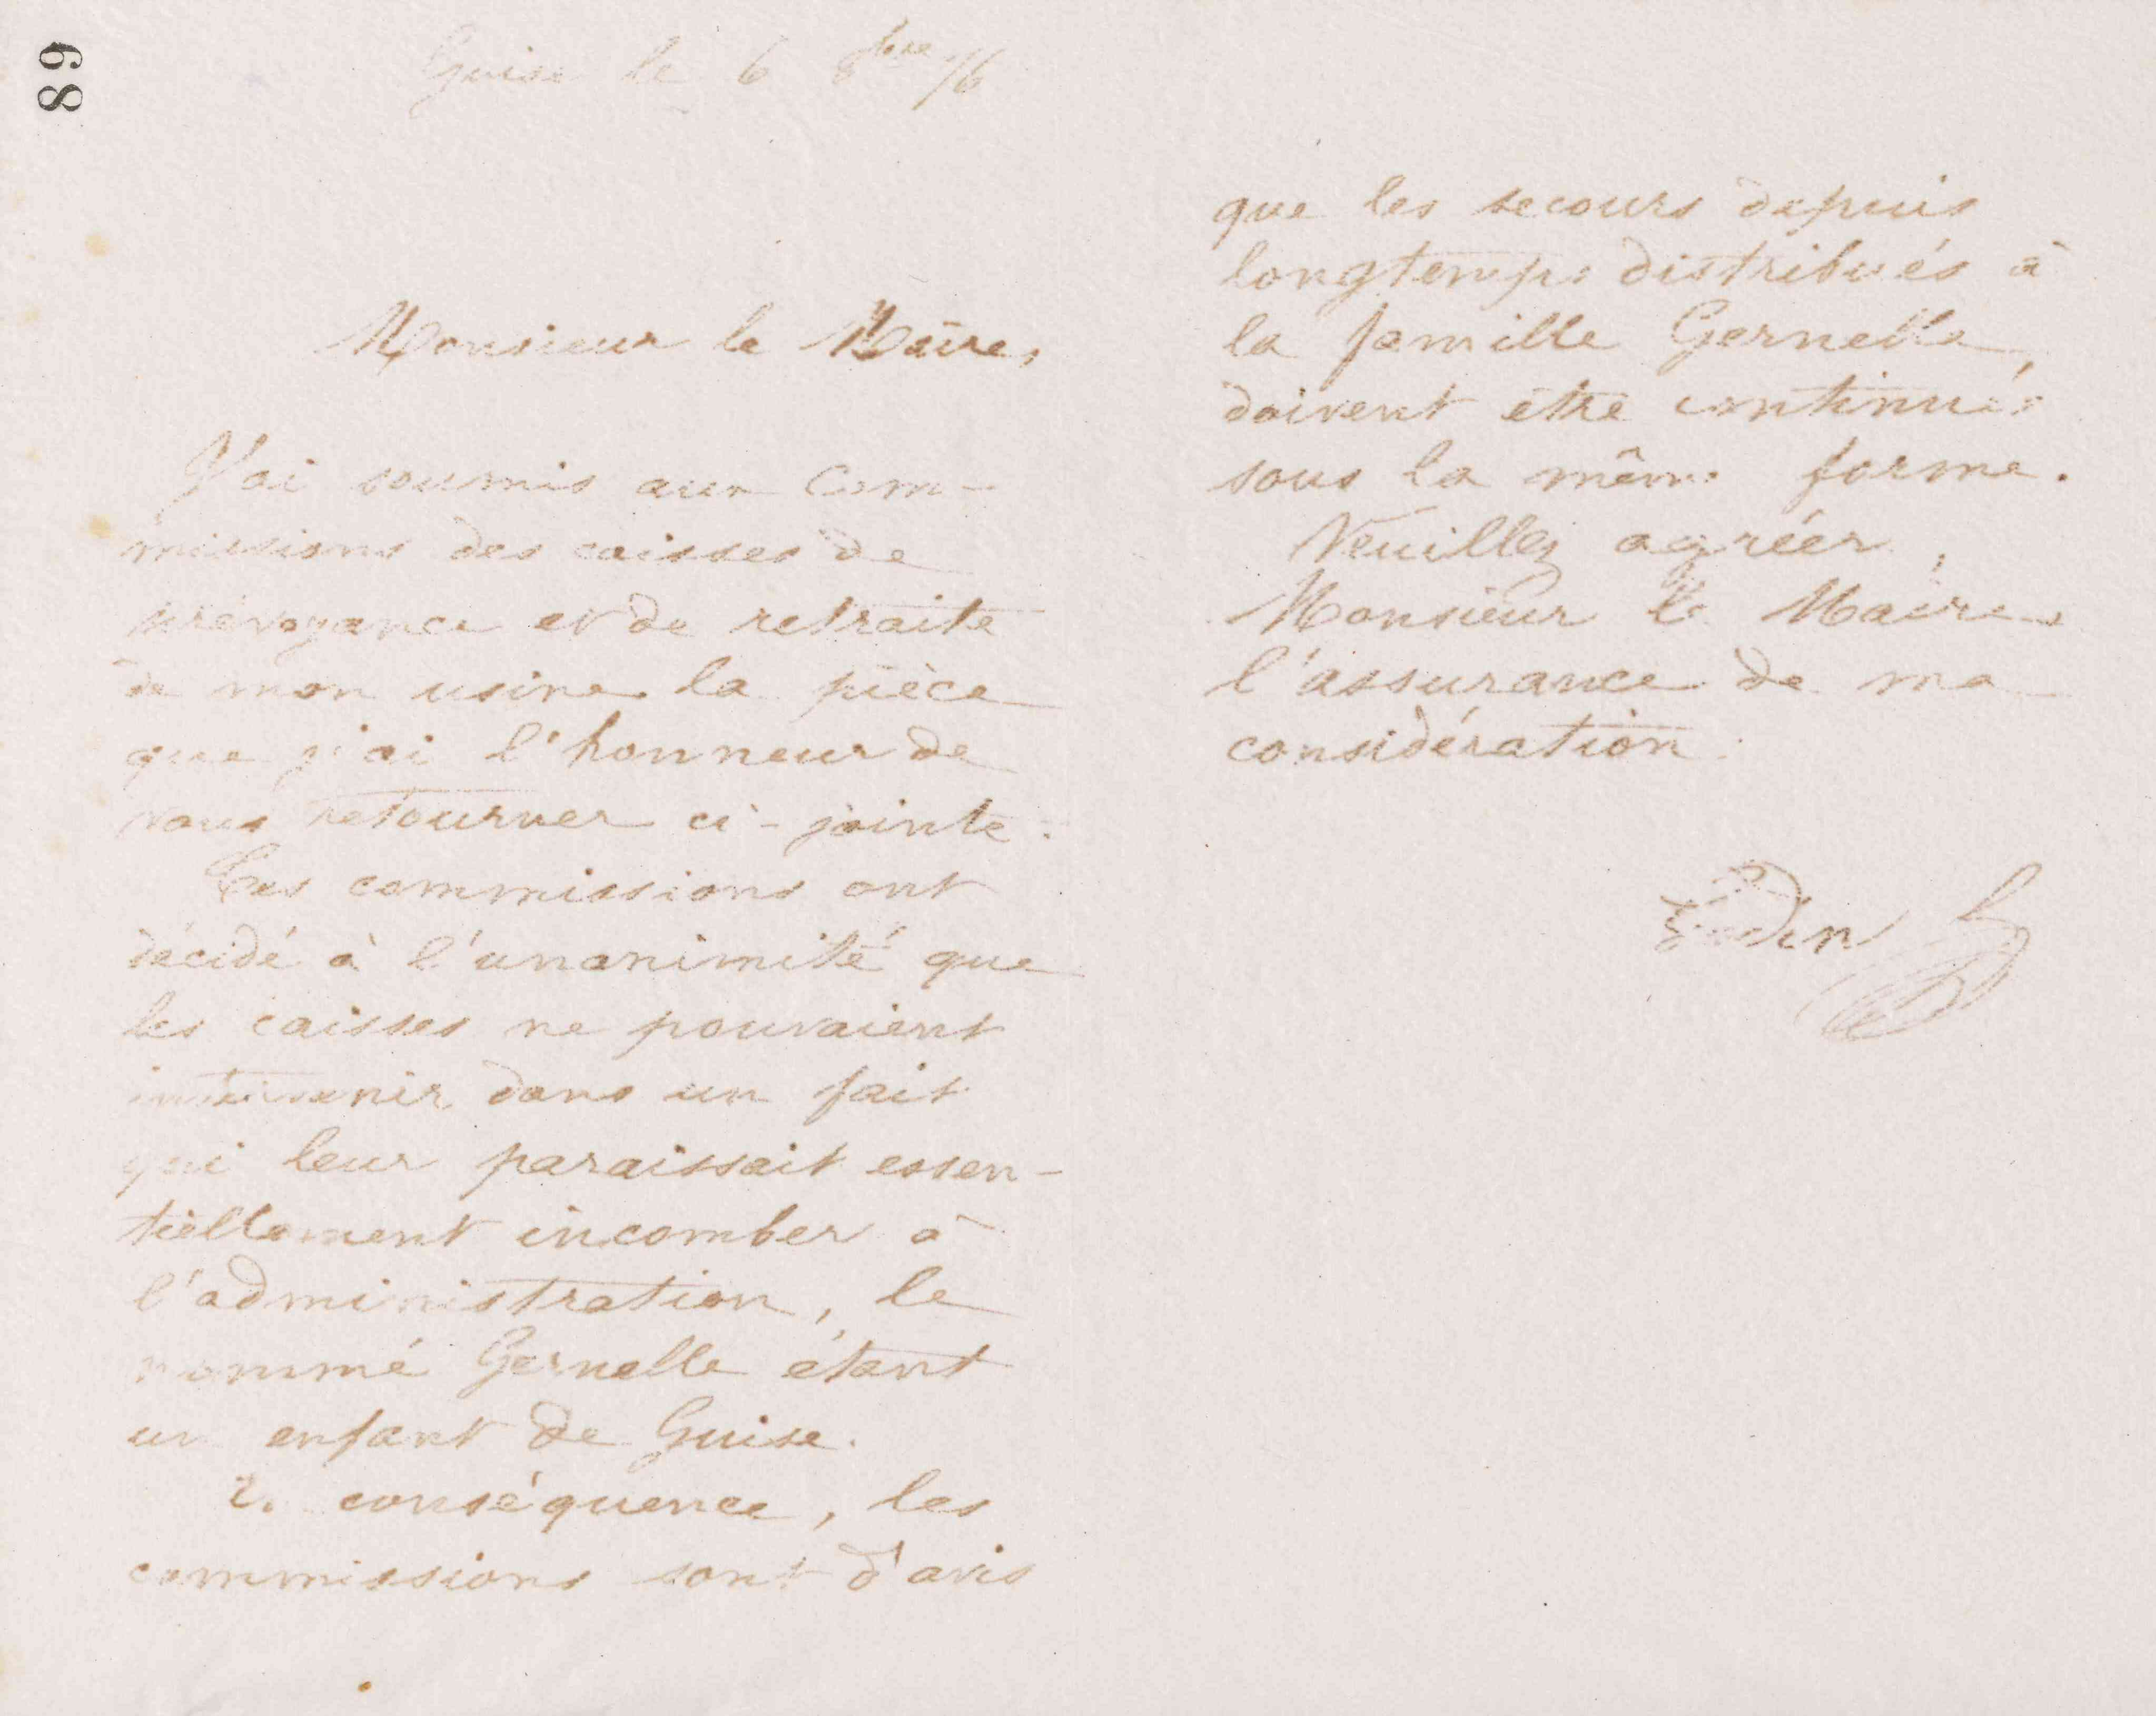 89
Guise le 6 8bre 76
Monsieur le Maire,
J'ai soumis aux Com-
missions des caisses de
prévoyance et de retraite
de mon usine la pièce
que j'ai l'honneur de
vous retourner ci-jointe.
Ces commissions ont
décidé à l'unanimité que
les caisses ne pouvaient
intervenir dans un fait
qui leur paraissait essen-
tiellement incomber à
l'administration, le
nommé Gernelle étant
un enfant de Guise.
En conséquence, les
commissions sont d'avis
que les secours depuis
longtemps distribués à
la famille Gernelle,
doivent être continués
sous la même forme.
Veuillez agréer,
Monsieur le Maire
l'assurance de ma
considération.
Godin